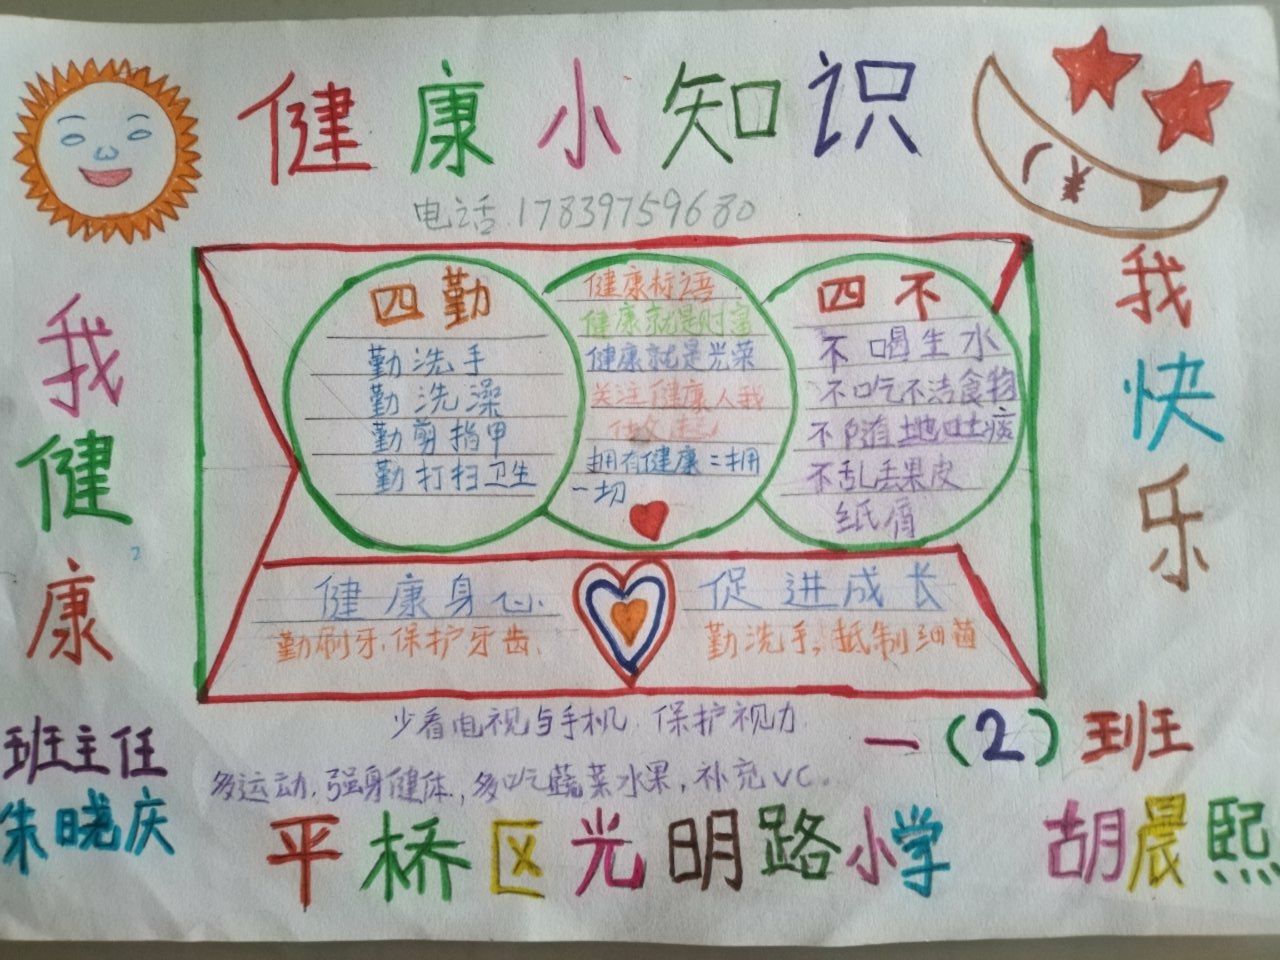 健康小知识
电话.17839759680
我健康
四勤
勤洗手
勤洗澡
勤剪指甲
勤打扫卫生
健康标语
健康就是财富
健康就是光荣
关注健康人我
拥有健康=拥
一切
四不
不喝生水
不吃不洁食物
不随地吐痰
不乱丢果皮
纸屑
我快乐
健康身心.
勤刷牙.保护牙齿.
促进成长
勤洗手,抵制细菌
少看电视与手机.保护视力.
多运动.强身健体.,多吃蔬菜水果,补充VC.
一(2)班
班主任
朱晓庆
平桥区光明路小学
胡晨熙